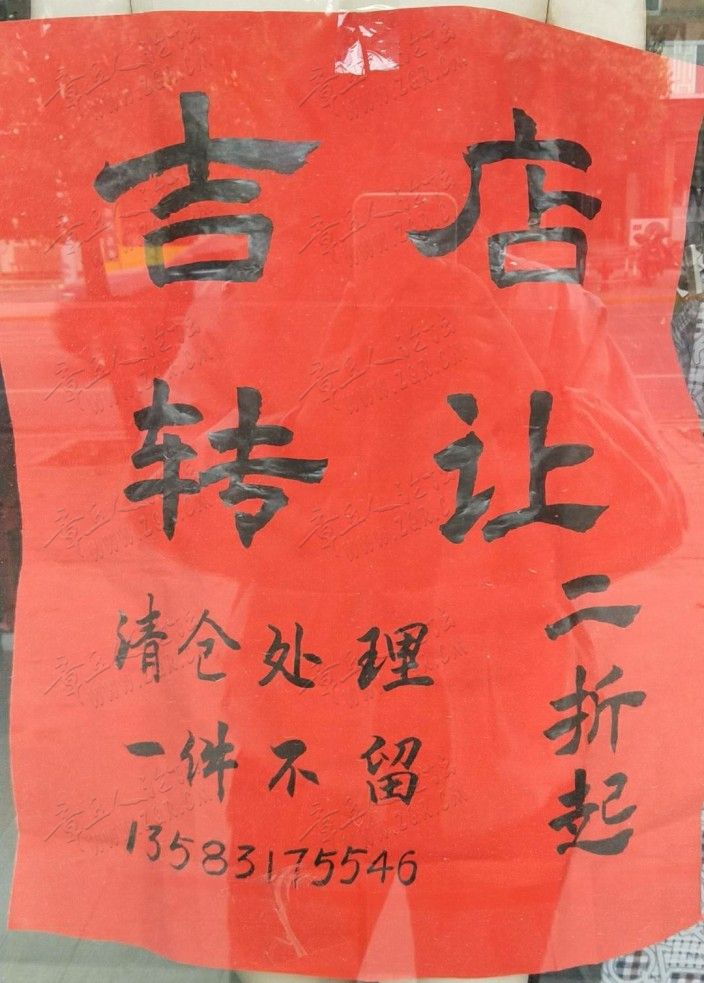 吉店
转让
清仓处理
一件不留
13583175546
二折起
章丘人论坛
www.zqr.cn